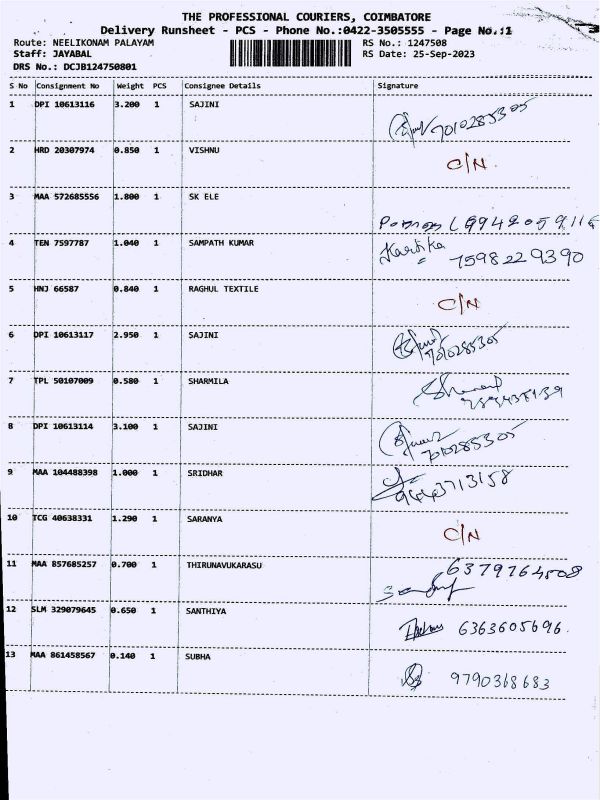 THE PROFESSIONAL COURIERS, COIMBATORE
Delivery Runsheet - PCS - Phone No.:0422-3505555 - Page No.:1
Route: NEELIKONAM PALAYAM
RS No.: 1247508
Staff: JAYABAL
RS Date: 25-Sep-2023
DRS No.: DCJB124750801
S No Consignment No Weight PCS Consignee Details Signature
1 DPI 10613116 3.200 1 SAJINI
7010285305
2 HRD 20307974 0.850 1 VISHNU
C/N
3 MAA 572685556 1.800 1 SK ELE
4 TEN 7597787 1.040 1 SAMPATH KUMAR Kartika
7598229390
5 HNJ 66587 0.840 1 RAGHUL TEXTILE
C/N
6 DPI 10613117 2.950 1 SAJINI
7010285305
7 TPL 50107009 0.580 1 SHARMILA
8 DPI 10613114 3.100 1 SAJINI
7010285305
9 MAA 104488398 1.000 1 SRIDHAR
9443713158
10 TCG 40638331 1.290 1 SARANYA
C/N
11 MAA 857685257 0.700 1 THIRUNAVUKARASU 6379764508
12 SLM 329079645 0.650 1 SANTHIYA
6363605696.
13 MAA 861458567 0.140 1 SUBHA
9790368683